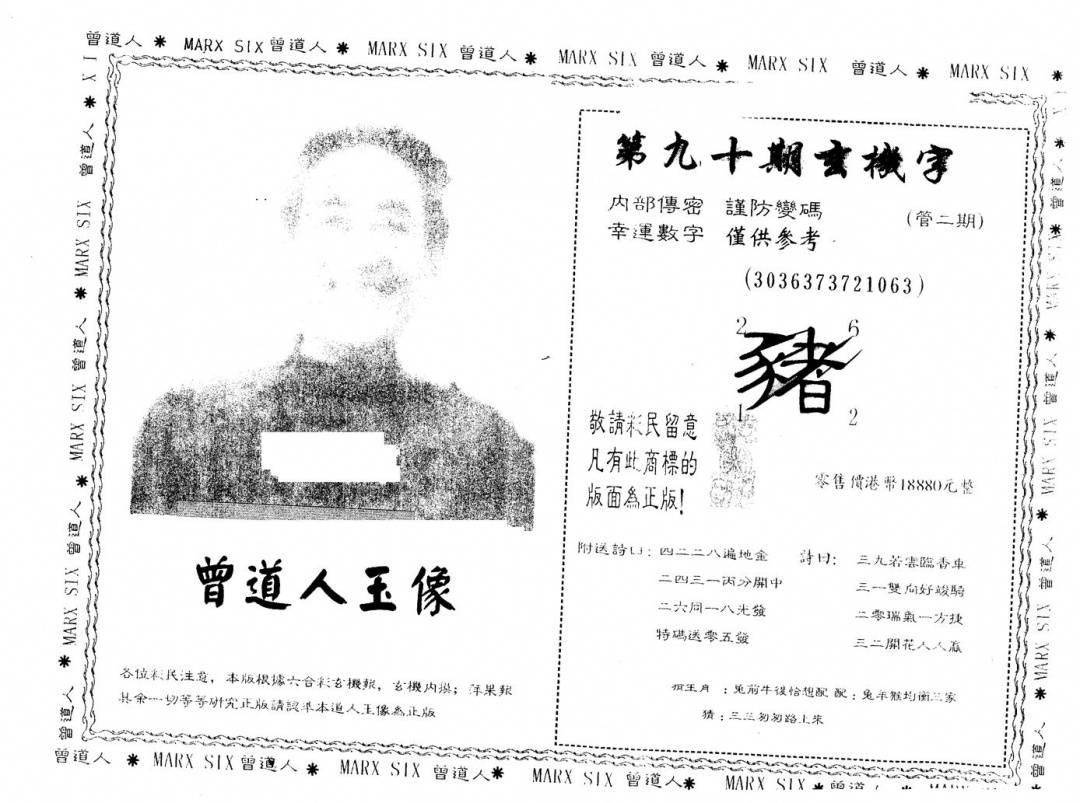 曾道人 * MARX SIX 曾道人 * MARX SIX 曾道人 * MARX SIX 曾道人 * MARX SIX 曾道人 * MARX SIX *
曾道人 * MARX SIX 曾道人 * MARX SIX 曾道人 * MARX SIX 曾道人 *
曾道人玉像
各位彩民注意，本版根據六合彩玄機報，玄機內幕；蘋果報
其余一切等等研究正版請認準本道人玉像為正版
第九十期玄機字
內部傳密 謹防變碼
(管二期)
幸運數字 僅供參考
(3036373721063)
2 6
豬
1 2
敬請彩民留意
凡有此商標的
版面為正版!
零售價港幣18880元整
附送詩曰：四二二八遍地金
二四三一丙分開中
二六同一八光發
特碼送零五發
詩曰：三九若雲臨香車
三一雙向好竣騎
二零瑞氣一方捷
三二開花人人贏
：兔前牛後恰想配 配：兔羊猴均衡三家
猜：三三匆匆路上來
* MARX SIX 曾道人 * MARX SIX 曾道人 * MARX SIX 曾道人 *
曾道人 * MARX SIX 曾道人 * MARX SIX 曾道人 * MARX SIX 曾道人 * MARX SIX * 曾道人 *